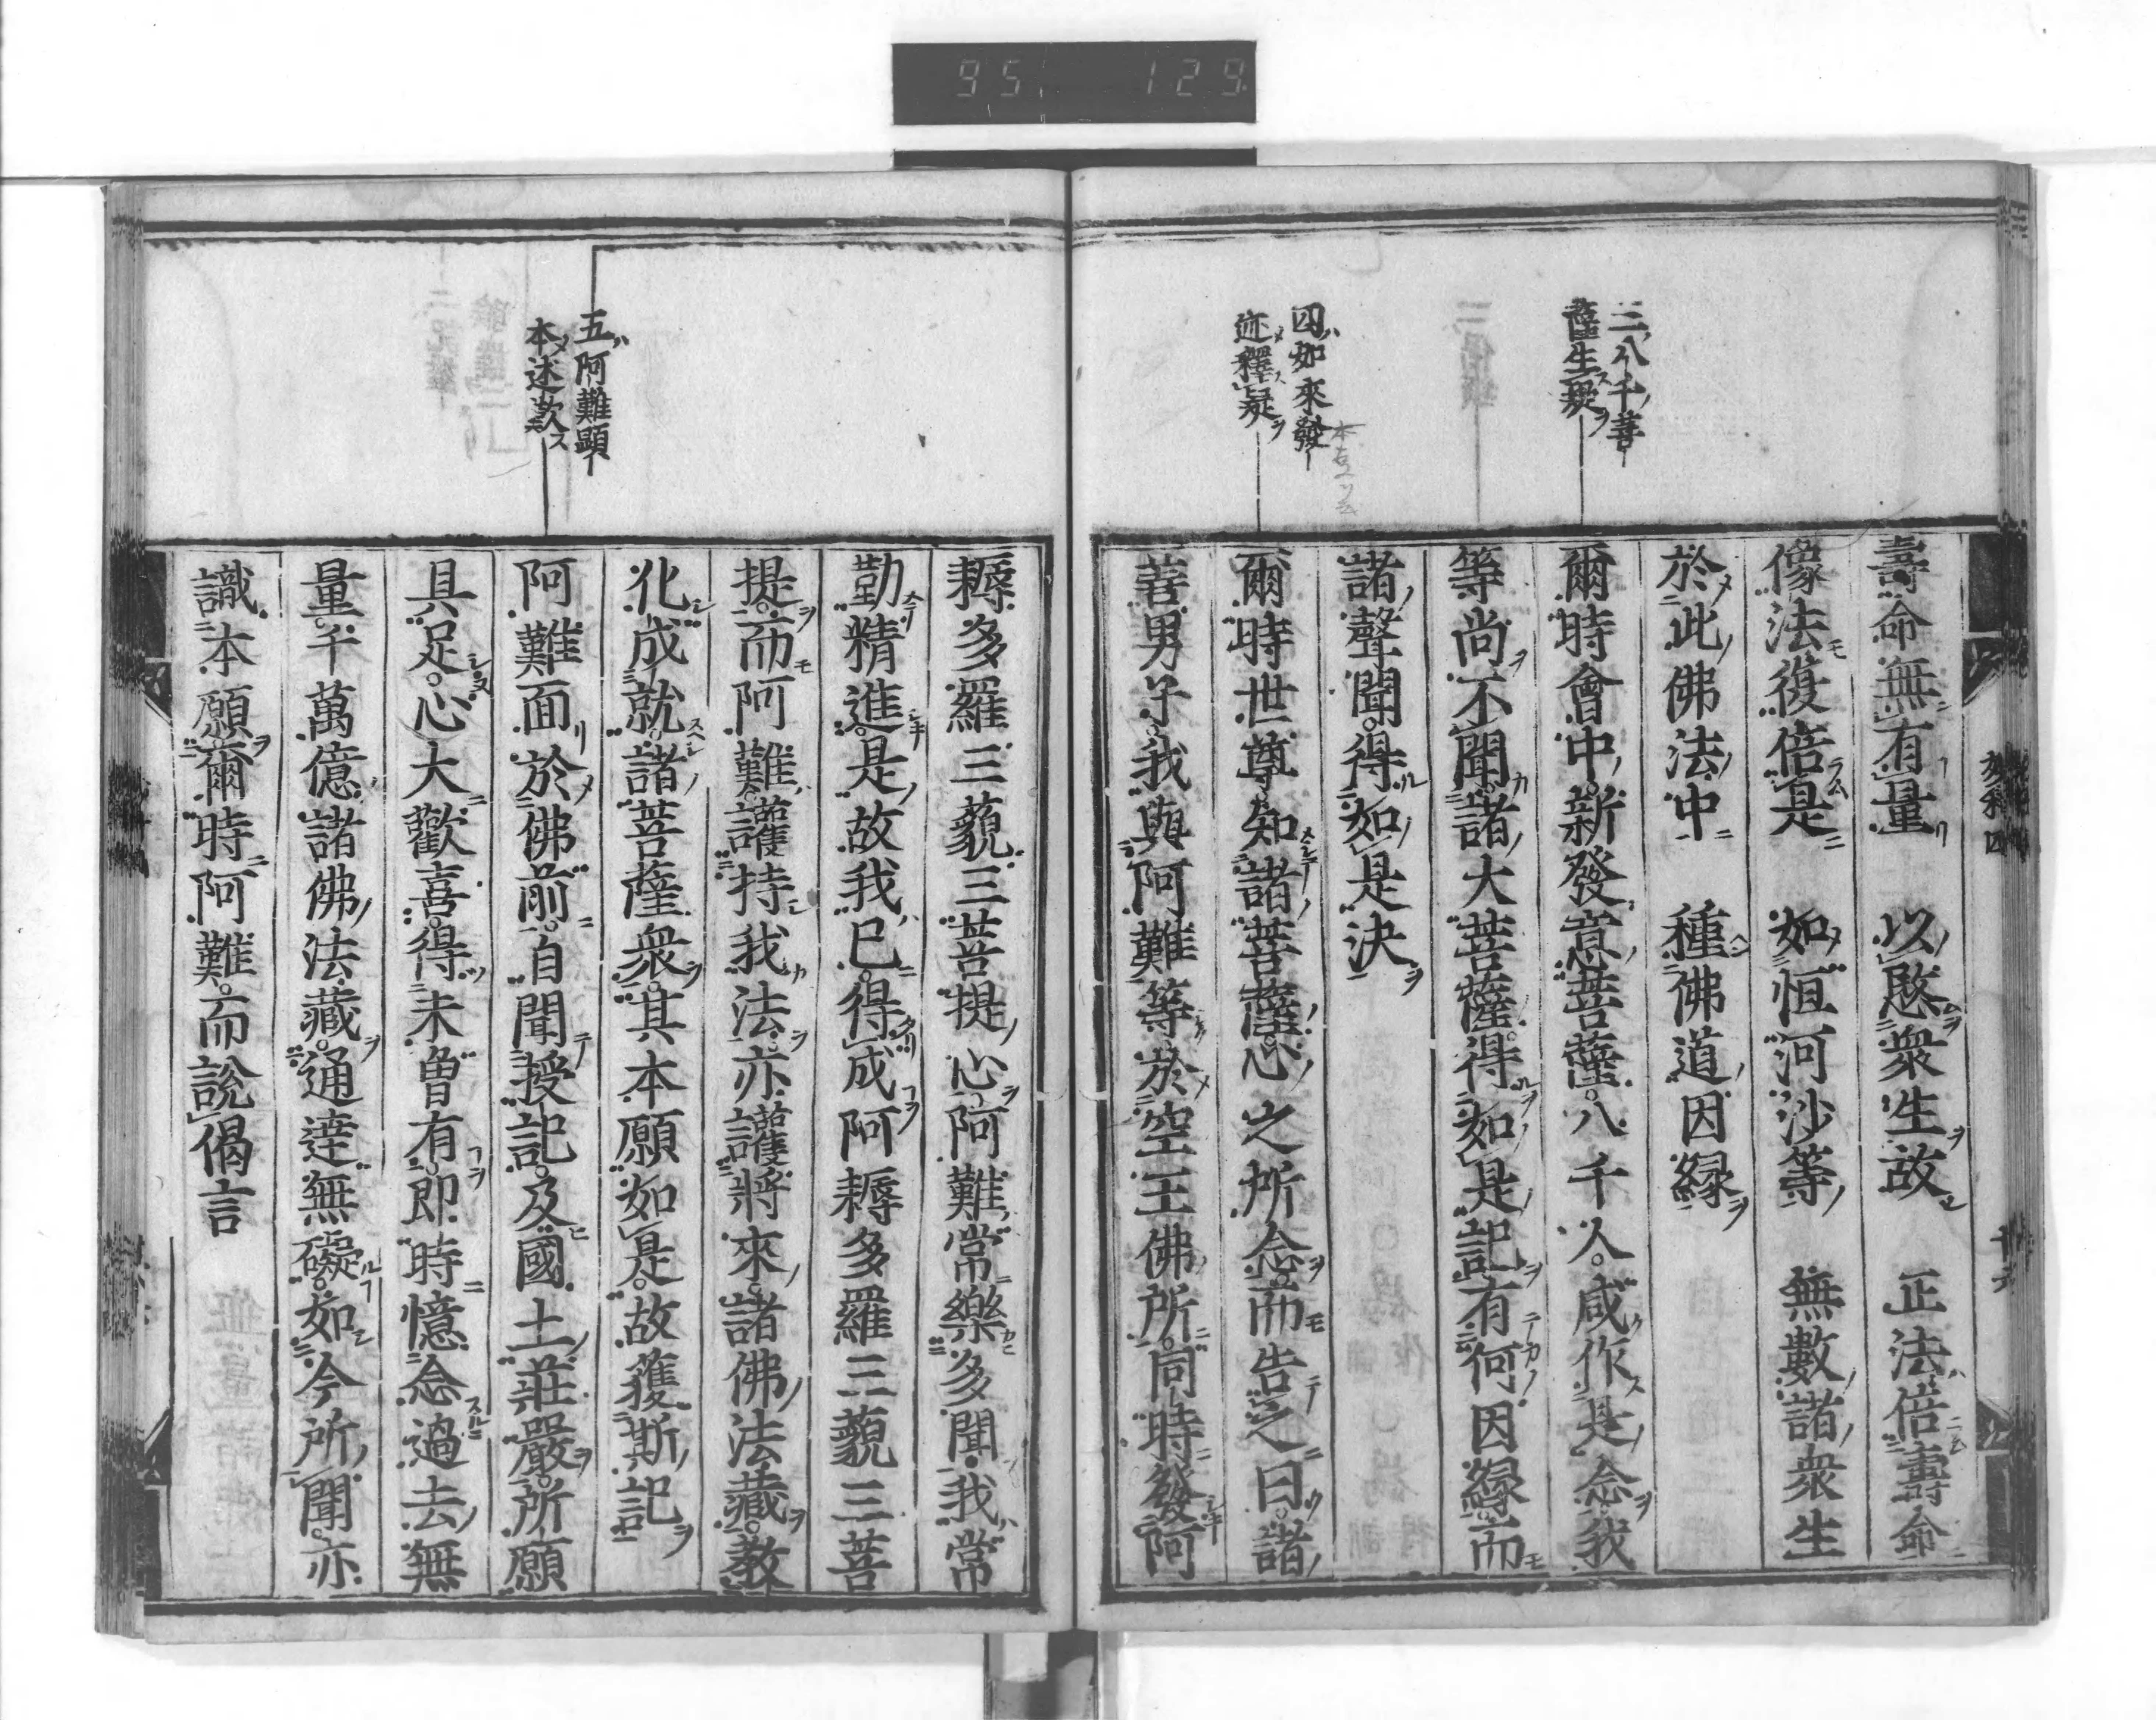 95 129
三八千菩
薩生疑
四如來發
迹釋疑
壽命無有量 以愍衆生故 正法倍壽命
像法復倍是 如恒河沙等 無數諸衆生
於此佛法中 種佛道因緣
爾時會中新發意菩薩八千人咸作是念我
等尚不聞諸大菩薩得如是記有何因緣而
諸聲聞得如是決
爾時世尊知諸菩薩心之所念而告之曰諸
善男子我與阿難等於空王佛所同時發阿
五阿難顯
本述歎
耨多羅三藐三菩提心阿難常樂多聞我常
勤精進是故我已得成阿耨多羅三藐三菩
提而阿難護持我法亦護將來諸佛法藏敎
化成就諸菩薩衆其本願如是故獲斯記
阿難面於佛前自聞授記及國土莊嚴所願
具足心大歡喜得未曾有即時憶念過去無
量千萬億諸佛法藏通達無礙如今所聞亦
識本願爾時阿難而說偈言